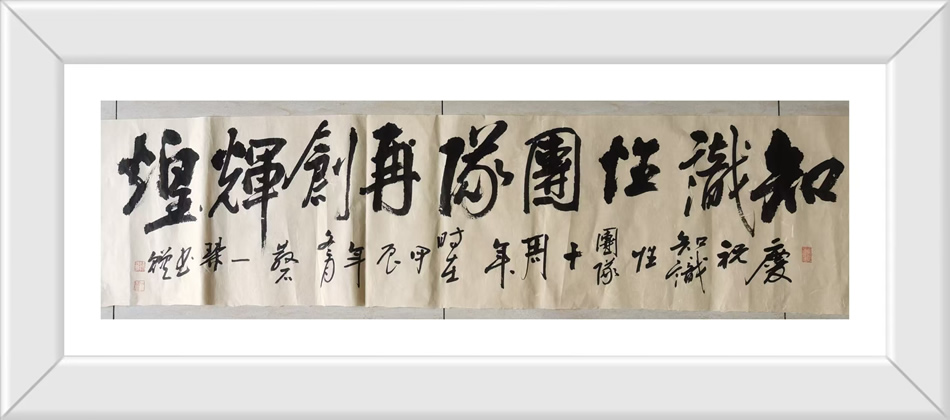 知識性團隊再創輝煌
慶祝知識性團隊十周年時在甲辰年冬月磐石一琹書贈